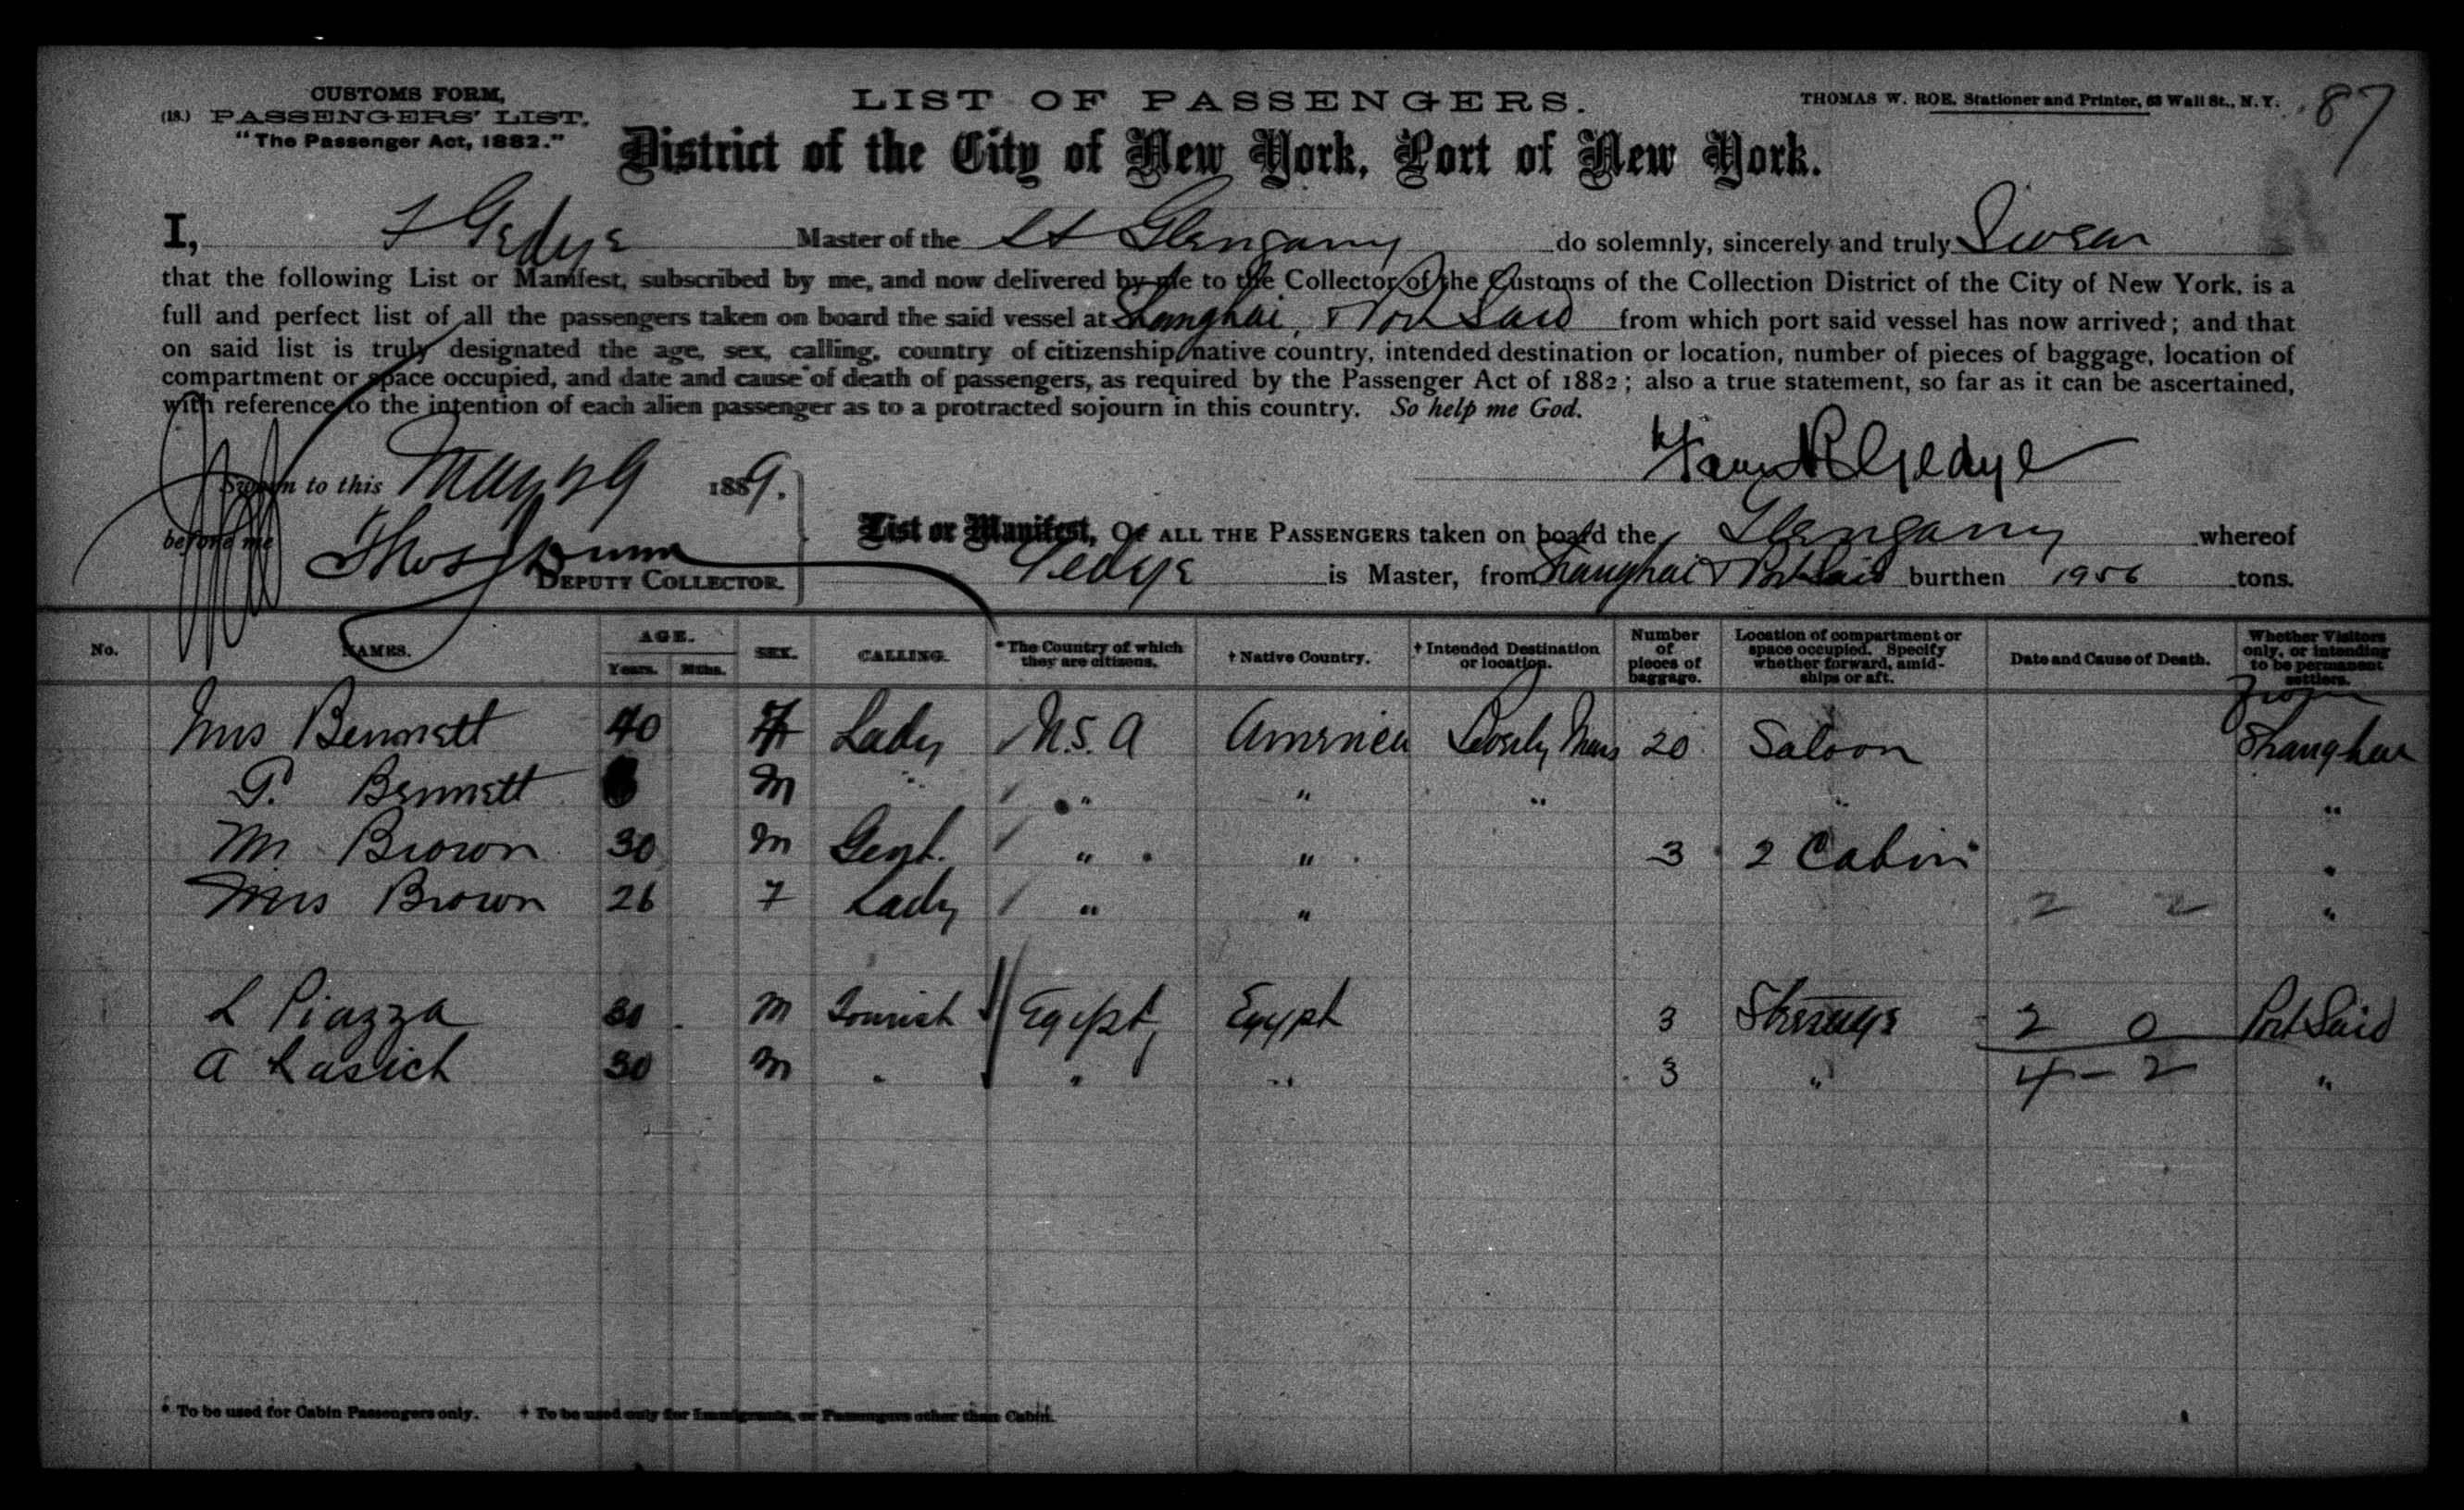 CUSTOMS FORM,
(18.) PASSENGERS' LIST.
"The Passenger Act, 1882."
LIST OF PASSENGERS.
THOMAS W. ROE, Stationer and Printer, 63 Wall St., N. Y.
87
District of the City of New York, Port of New York.
I, F Gedye Master of the St Glengarry do solemnly, sincerely and truly Swear
that the following List or Manifest, subscribed by me, and now delivered by me to the Collector of the Customs of the Collection District of the City of New York, is a
full and perfect list of all the passengers taken on board the said vessel at Shanghai, & Port Said from which port said vessel has now arrived; and that
on said list is truly designated the age, sex, calling, country of citizenship, native country, intended destination or location, number of pieces of baggage, location of
compartment or space occupied, and date and cause of death of passengers, as required by the Passenger Act of 1882; also a true statement, so far as it can be ascertained,
with reference to the intention of each alien passenger as to a protracted sojourn in this country. So help me God.
Gedye
Sworn to this May 1889.
before me Thos Dunn
DEPUTY COLLECTOR.
List or Manifest, OF ALL THE PASSENGERS taken on board the Glengarry whereof
Gedye is Master, from Shanghai & Port Said burthen 1956 tons.
No. NAMES. AGE. Years. Mths. SEX. CALLING. *The Country of which they are citizens. †Native Country. †Intended Destination or location. Number of pieces of baggage. Location of compartment or space occupied. Specify whether forward, amidships or aft. Date and Cause of Death. Whether Visitors only, or intending to be permanent settlers.
From
Mrs Bennett 40 F Lady U.S.A America Mass 20 Saloon Shanghai
G. Bennett M " " " " " "
Mr Brown 30 M Gent. " " 3 2 Cabin "
Mrs Brown 26 F Lady " " 2 2 "
L Piazza M Tourist Egypt, Egypt 3 Steerage 2 0 Port Said
A Lasich 30 M " " " 3 " 4 - 2 "
* To be used for Cabin Passengers only. † To be used only for Immigrants, or Passengers other than Cabin.